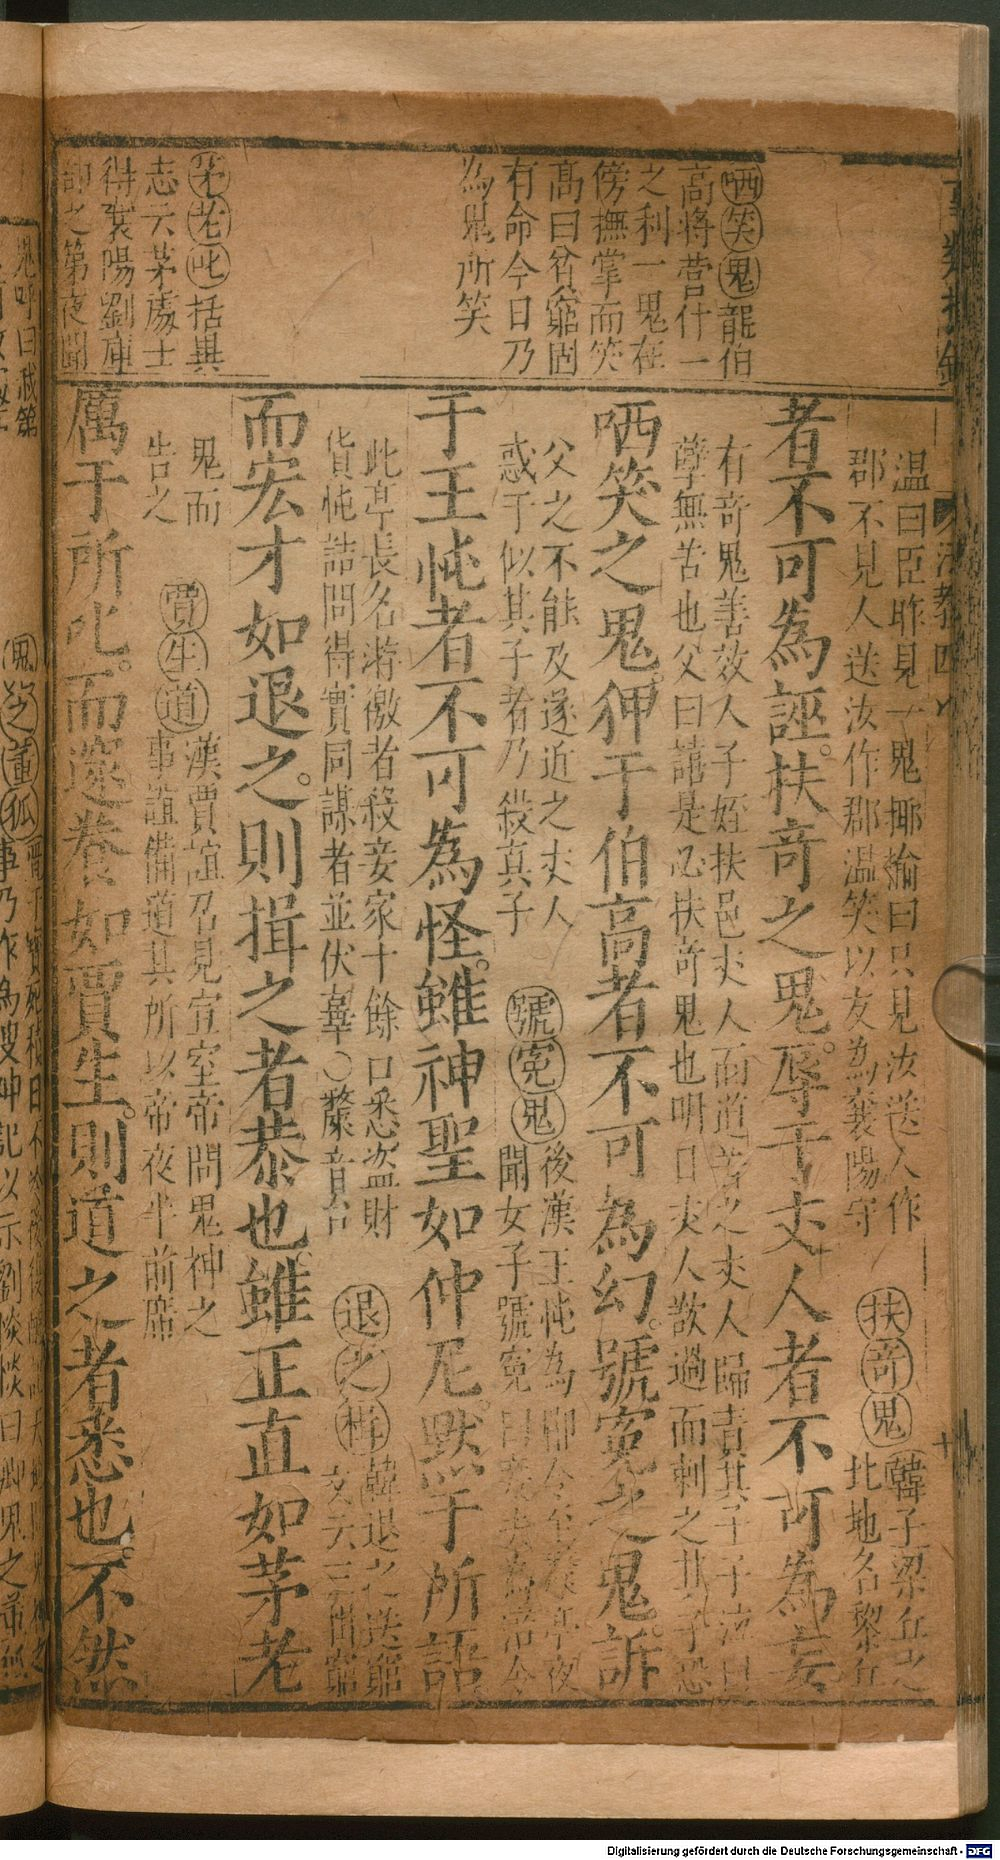 哂笑鬼龍伯
高將營什一
之利一鬼在
傍撫掌而笑
高曰貧窮固
有命今日乃
為鬼所笑
茅老叱括異
志云茅處士
得襄陽劉庫
部之第夜聞
溫曰臣昨見一鬼揶揄曰只見汝送人作
郡不見人送汝作郡溫笑以友為襄陽守
扶奇鬼
韓子梁丘之
北地名黎丘
者不可為誣扶奇之鬼辱于丈人者不可為妄
有奇鬼善效人子姪扶邑丈人而道苦之丈人歸責其子子泣曰
孽無苦也父曰譆是必扶奇鬼也明日丈人飲過而刺之其子恐
哂笑之鬼狎于伯高者不可為幻號寃之鬼訴
父之不能及遂近之丈人
惑于似其子者乃殺真子
號寃鬼
後漢王忳為郿令至亭夜
聞女子號寃曰為令
于王忳者不可為怪雖神聖如仲尼默于所語
此亭長名游徼者殺妾家十餘口悉盜財
貨忳詰問得實同謀者並伏辜○斄音台
退之揖
韓退之送窮
文云三揖窮
而宏才如退之則揖之者恭也雖正直如茅老
鬼而
告之
賈生道
漢賈誼召見宣室帝問鬼神之
事誼備道其所以帝夜半前席
厲于所叱而遂眷如賈生則道之者悉也不然
鬼之董狐
Digitalisierung gefördert durch die Deutsche Forschungsgemeinschaft - DFG